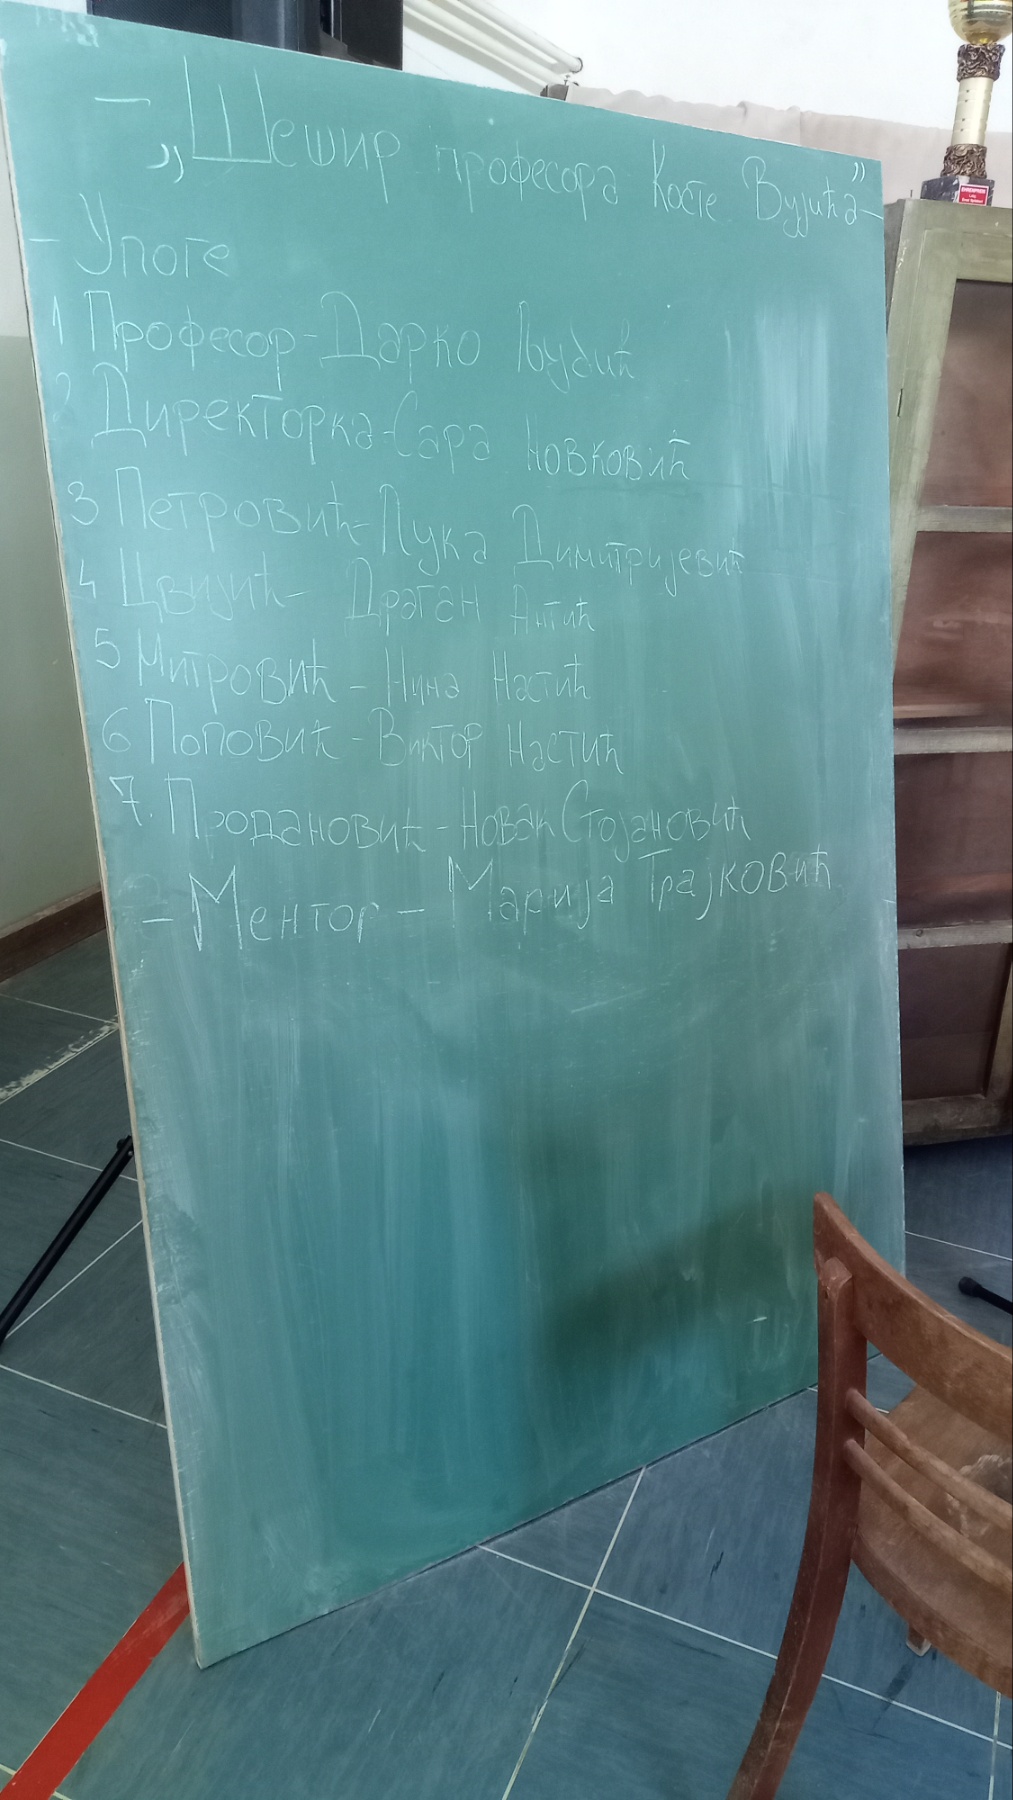 – „Шешир професора Косте Вујића” –
– Улоге
1 Професор - Дарко Љубић
2 Директорка - Сара Новковић
3 Петровић - Лука Димитријевић
4 Цвијић - Драган Антић
5 Митровић - Нина Настић
6 Поповић - Виктор Настић
7. Продановић - Новак Стојановић
– Ментор – Марија Трајковић